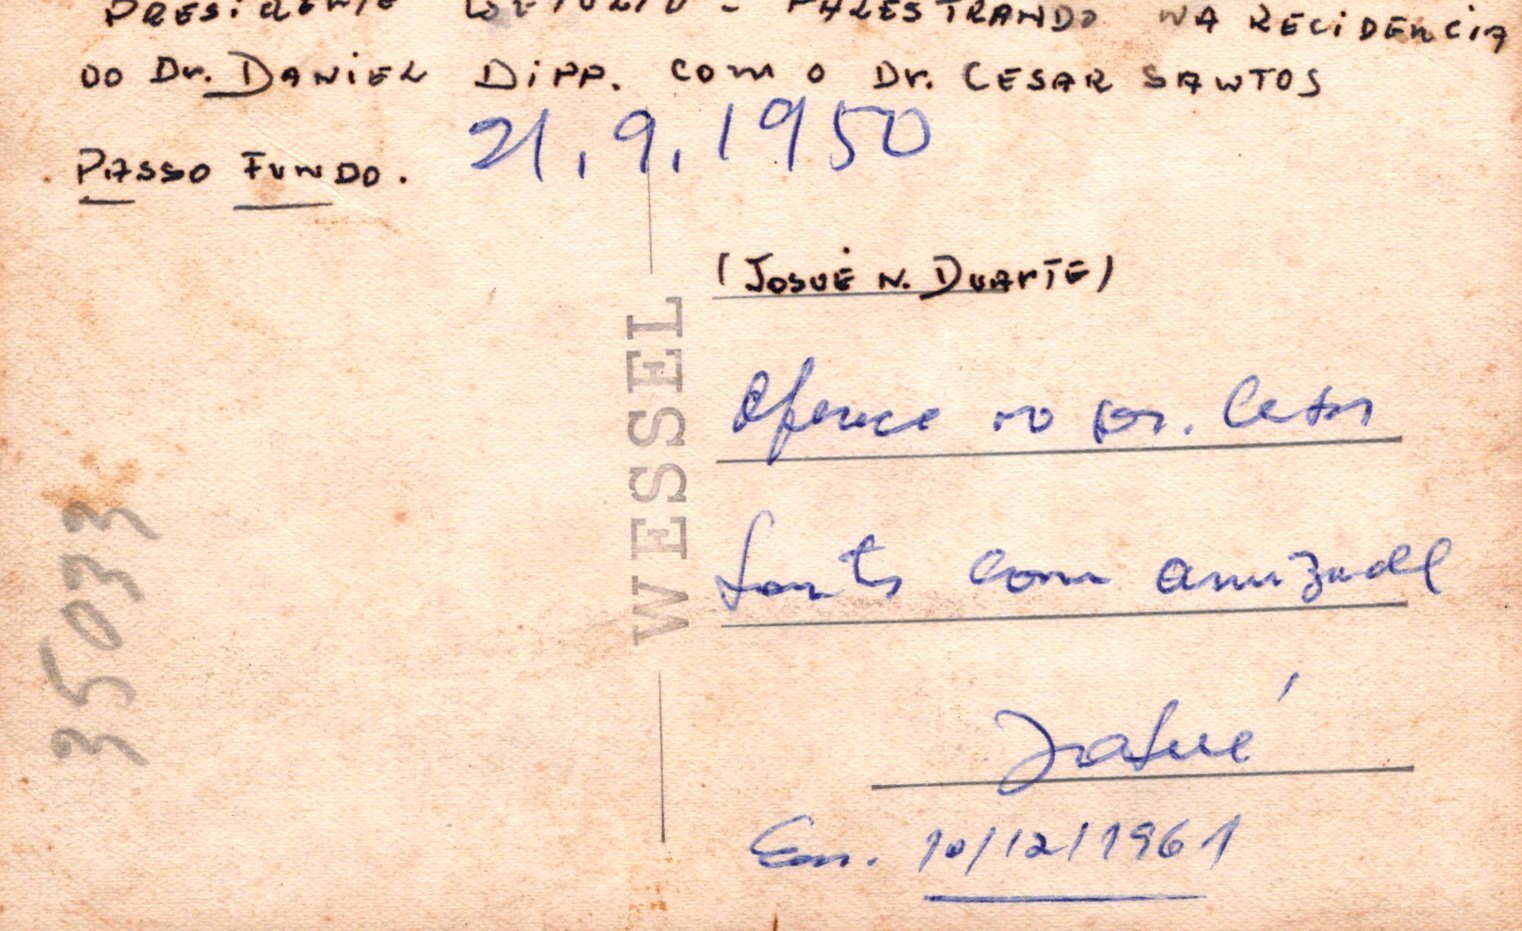 PRESIDENTE GETULIO - PALESTRANDO NA RECIDENCIA
DO Dr. DANIEL DIPP. COM O Dr. CESAR SANTOS
PASSO FUNDO. 21.9.1950
(JOSUÉ N. DUARTE)
WESSEL
Oferece ao Dr. Cesar
Santos com amizade
Josué
Em. 10/12/1961
35033